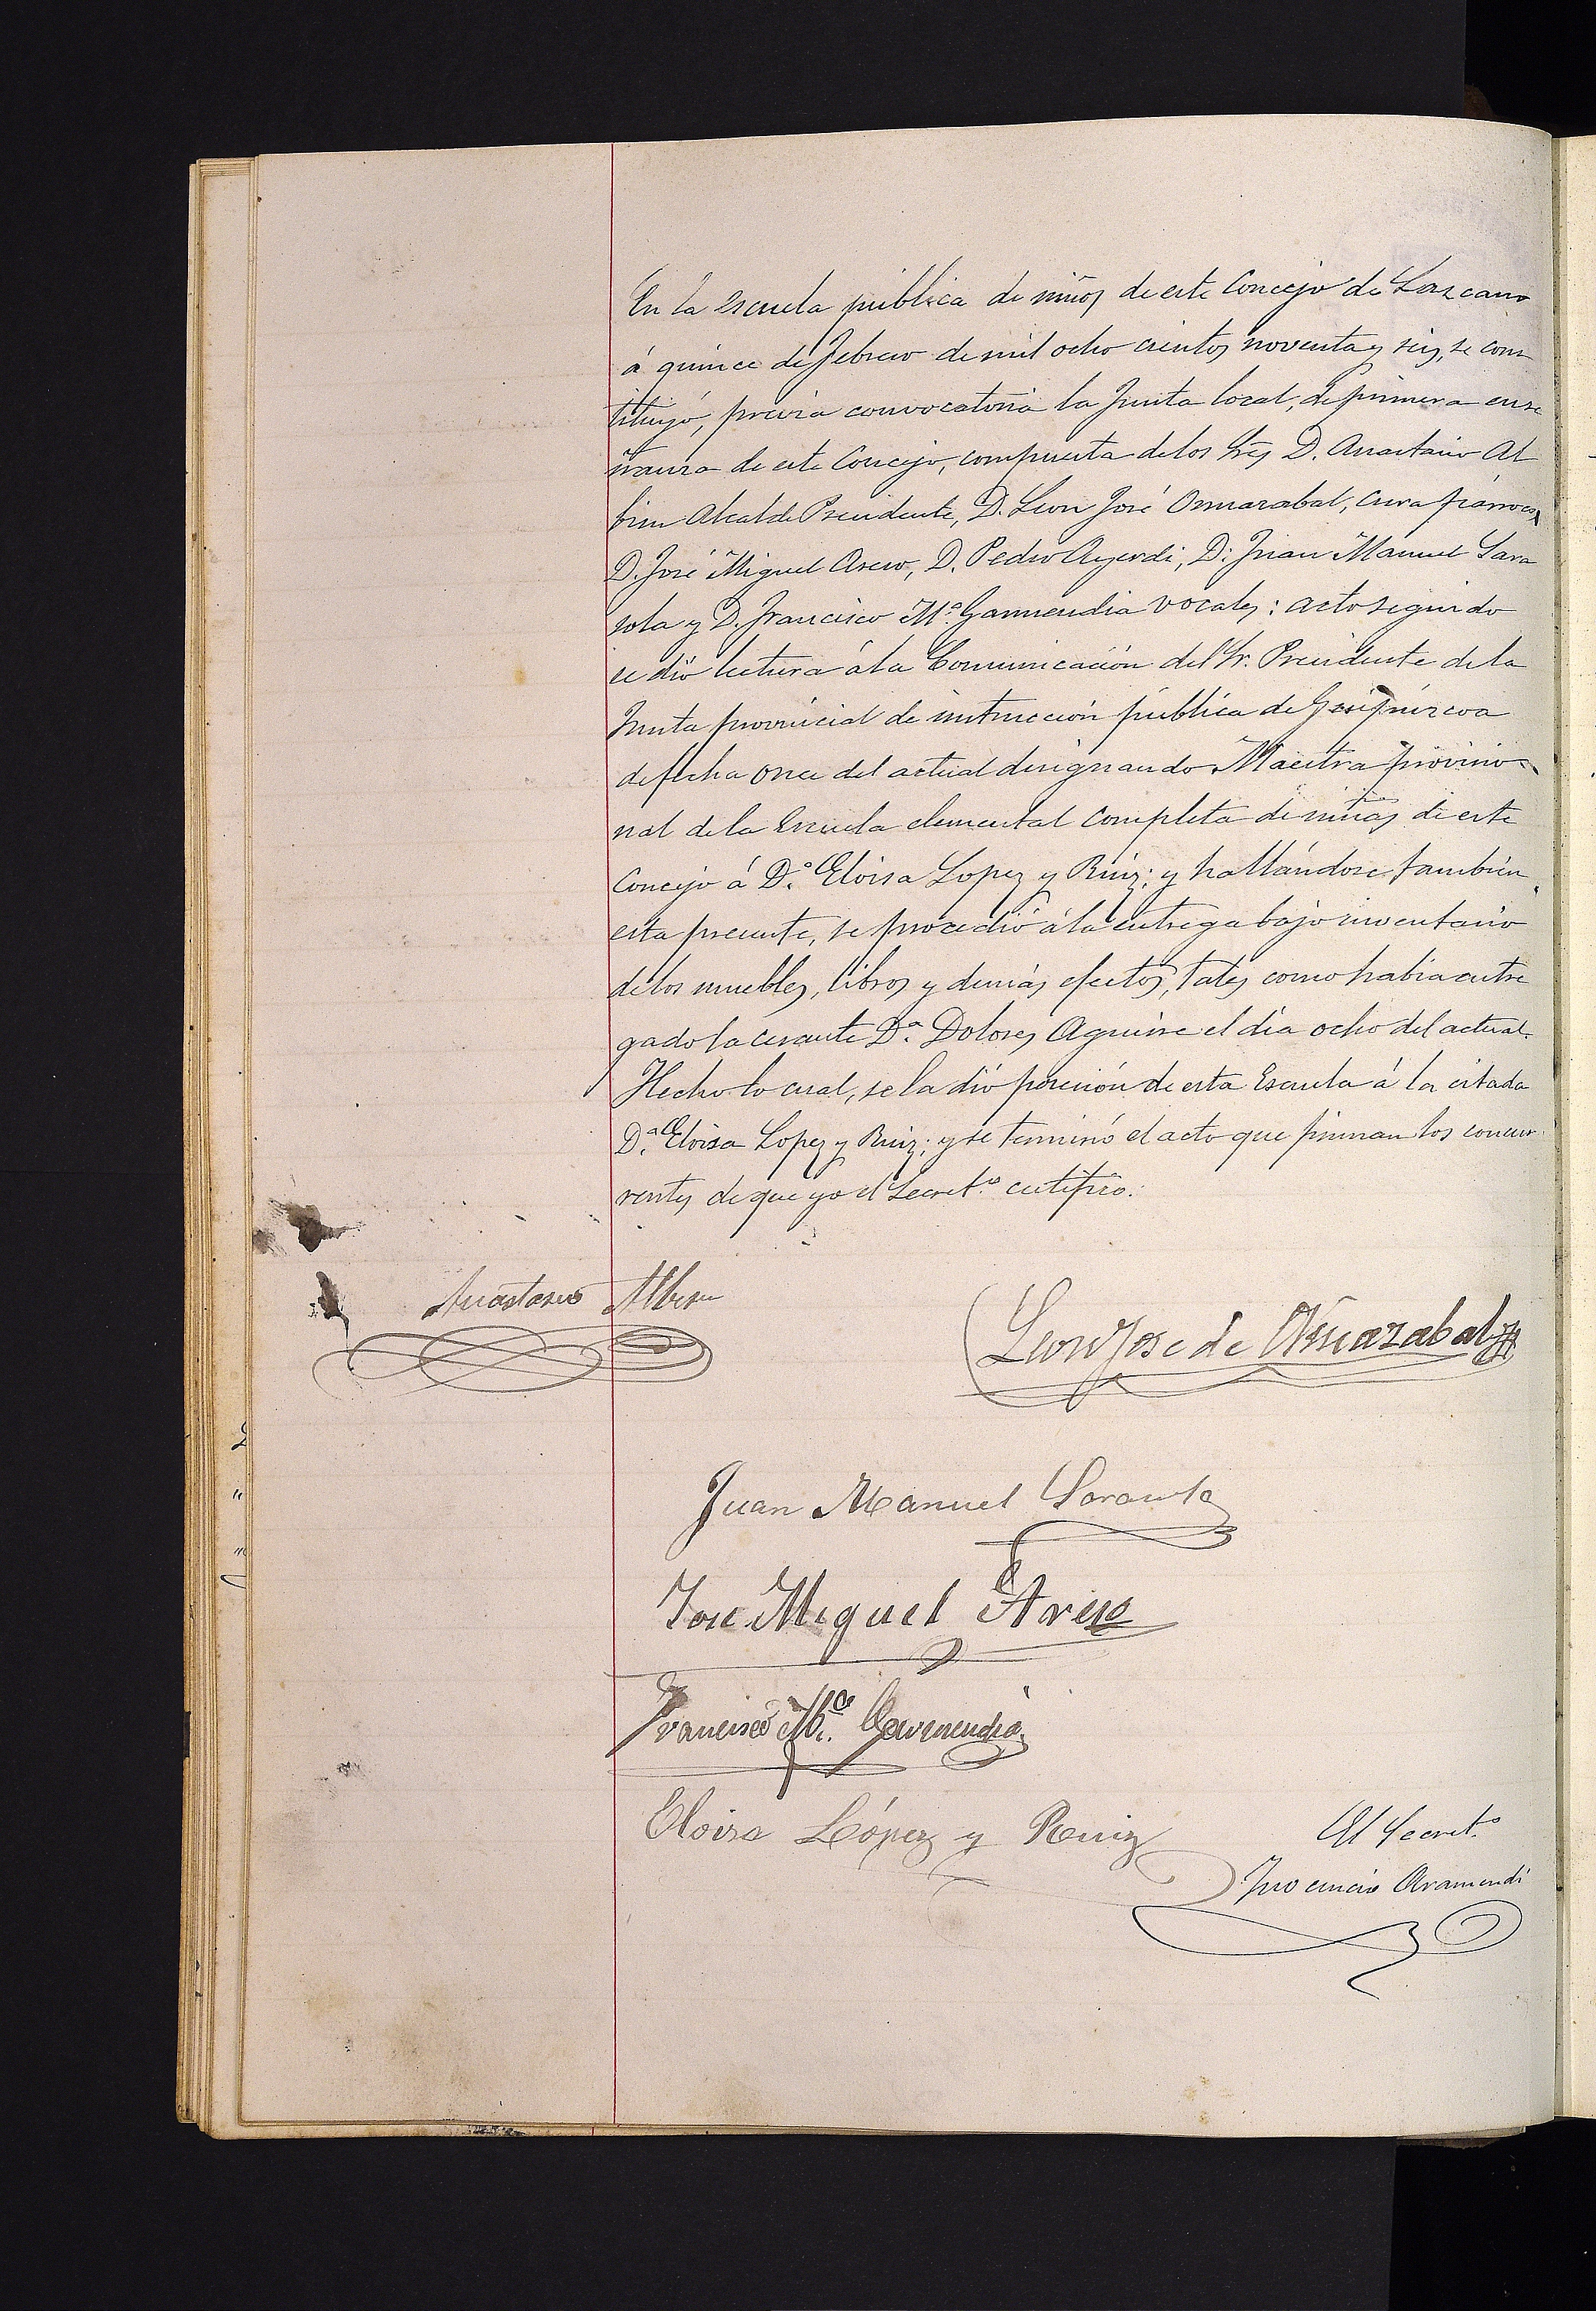 En la escuela pública de niños de este Concejo de Lazcano
á quince de Febrero de mil ocho cientos noventa y seis, se cons
tituyó, previa convocatoria la Junta local, de primera ense
ñanza de este Concejo, compuesta de los Sres D. Anastasio Al
bisu Alcalde Presidente, D. Leon José Ormazabal, cura párroco,
D. José Miguel Areso, D. Pedro Ayerdi, D. Juan Manuel Sara
sola y D. Francisco Mª Garmendia vocales: acto seguido
se dió lectura á la Comunicación del Sr. Presidente de la
Junta provincial de instrucción pública de Guipúzcoa
de fecha once del actual designando Maestra provisio-
nal de la Escuela elemental completa de niñas de este
Concejo á D.ª Eloisa Lopez y Ruiz; y hallándose también
esta presente, se procedió á la entrega bajo inventario
de los muebles, libros y demás efectos, tales como habia entre
gado la cesante D.ª Dolores Aguirre el dia ocho del actual.
Hecho lo cual, se la dió posesión de esta Escuela á la citada
D.ª Eloisa Lopez y Ruiz; y se terminó el acto que firman los concur
rentes de que yo el Secret.º certifico.
Anastasio Albisu
Leon Jose de Ormazabal
Juan Manuel Sarasola
Jose Miguel Areso
Francisco Mª Garmendia
Eloisa López y Ruiz
El Secret.º
Inocencio Aramendi